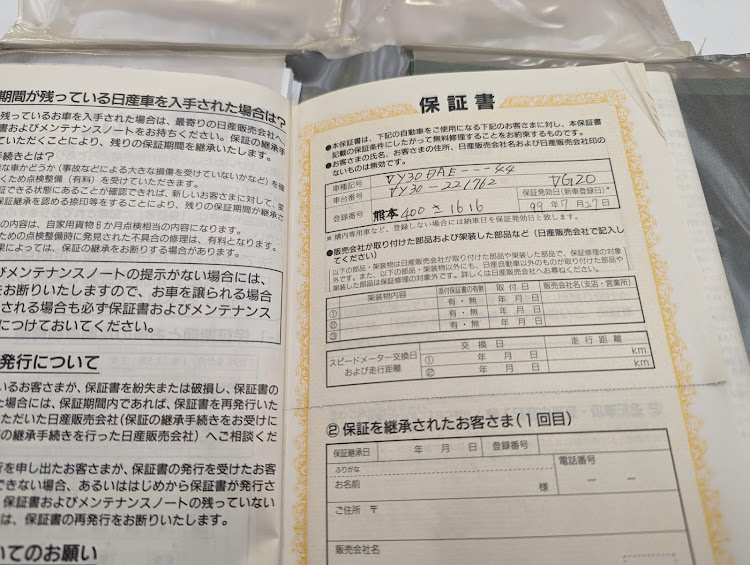 期間が残っている日産車を入手された場合は?
残っているお車を入手された場合は、最寄りの日産販売会社へ
書およびメンテナンスノートをお持ちください。保証の継承手
ていただくことにより、残りの保証期間を継承いたします。
手続きとは?
な車かどうか(事故などによる大きな損傷を受けていないかなど)を確
ための点検整備(有料)を受けていただきます。
証できる状態にあることが確認できれば、新しいお客さまに対して、変
保証継承を認める捺印等をすることにより、残りの保証期間が継承さ
の内容は、自家用貨物6か月点検相当の内容になります。
ための点検整備時に発見された不具合の修理は、有料となります。
果によっては、保証の継承をお断りする場合があります。
びメンテナンスノートの提示がない場合には、
をお断りいたしますので、お車を譲られる場合
される場合も必ず保証書およびメンテナンス
につけておいてください。
発行について
いるお客さまが、保証書を紛失または破損し、保証書の
た場合には、保証期間内であれば、保証書を再発行いた
ただいた日産販売会社(保証の継承手続きをお受けに
の継承手続きを行った日産販売会社)へご相談くだ
行を申し出たお客さまが、保証書の発行を受けたお客
できない場合、あるいははじめから保証書が発行さ
、保証書およびメンテナンスノートの残っていない
は、保証書の再発行をお断りいたします。
いてのお願い
保証書
●本保証書は、下記の自動車をご使用になる下記のお客さまに対し、本保証書
記載の保証条件にしたがって無料修理することをお約束するものです。
●お客さまの氏名、お客さまの住所、日産販売会社名および日産販売会社印の
ないものは無効です。
車種記号 VY30DAE---44
車台番号 VY30-221762 VG20
保証発効日(新車登録日)*
登録番号 熊本 400 さ 1616 99年7月27日
*構内専用車など、登録しない場合には納車日を保証発効日と致します。
●販売会社が取り付けた部品および架装した部品など(日産販売会社で記入し
てください)
以下の部品・架装物は日産販売会社が取り付けた部品や架装した部品で、保証修理の対象
外です。また、以下の部品・架装物以外にも、日産自動車以外のものが取り付けた部品や
架装した部品は保証修理の対象外です。詳しくは日産販売会社へお尋ねください。
架装物内容 添付保証書の有無 取付日 販売会社名(支店・営業所)
① 有・無 年 月 日
② 有・無 年 月 日
③ 有・無 年 月 日
スピードメーター交換日
および走行距離
交換日 走行距離
① 年 月 日 km
② 年 月 日 km
②保証を継承されたお客さま(1回目)
保証継承日 年 月 日 登録番号
ふりがな 電話番号
お名前 様
ご住所 〒
販売会社名